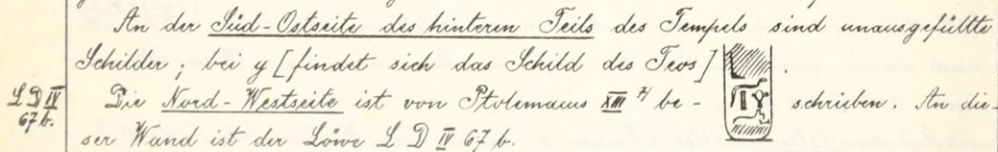 An der Süd-Ostseite des hinteren Teils des Tempels sind unausgefüllte
Schilder; bei y [findet sich das Schild des Teos]
L D IV
67 b.
Die Nord-Westseite ist von Ptolemaeus XIII 7) be-
schrieben. An die-
ser Wand ist der Löwe L D IV 67 b.